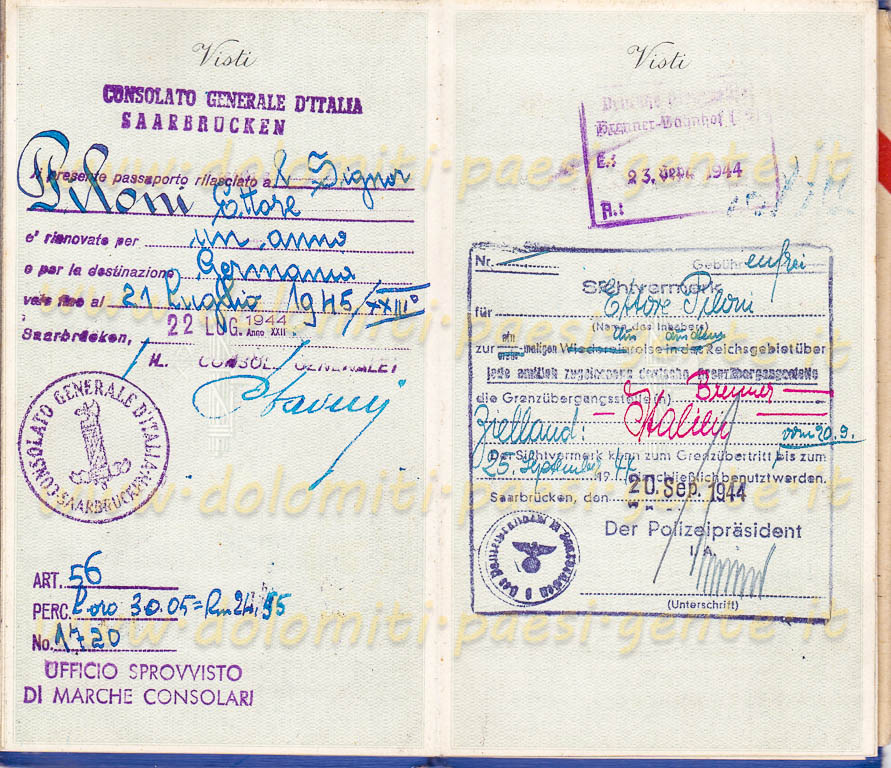 Visti
CONSOLATO GENERALE D'ITALIA
SAARBRUCKEN
Il presente passaporto rilasciato a l Signor
Piloni Ettore
e' rinnovato per un anno
e per la destinazione Germania
vale fino al 21 Luglio 1945/XXIII°
Saarbrücken, 22 LUG. 1944 Anno XXII
IL CONSOLE GENERALE
CONSOLATO GENERALE D'ITALIA
SAARBRUCKEN
ART. 56
PERC. l'oro 30.05 = Rm 24,95
No. 1720
UFFICIO SPROVVISTO
DI MARCHE CONSOLARI
Visti
Brenner-Bahnhof
E.: 23. Sep. 1944
A.:
Nr. Gebühr enfrei
Sichtvermerk
für Ettore Piloni
(Name des Inhabers)
zur ein maligen Wiedereinreise in das Reichsgebiet über
jede amtlich zugelassene deutsche Grenzübergangsstelle
die Grenzübergangsstelle(n) Brenner
Zielland: Italien vom 20.9.
Der Sichtvermerk kann zum Grenzübertritt bis zum
25. September 1944 einschließlich benutzt werden.
Saarbrücken, den 20. Sep. 1944
Der Polizeipräsident
I. A.
(Unterschrift)
www.dolomiti-paesi-gente.it